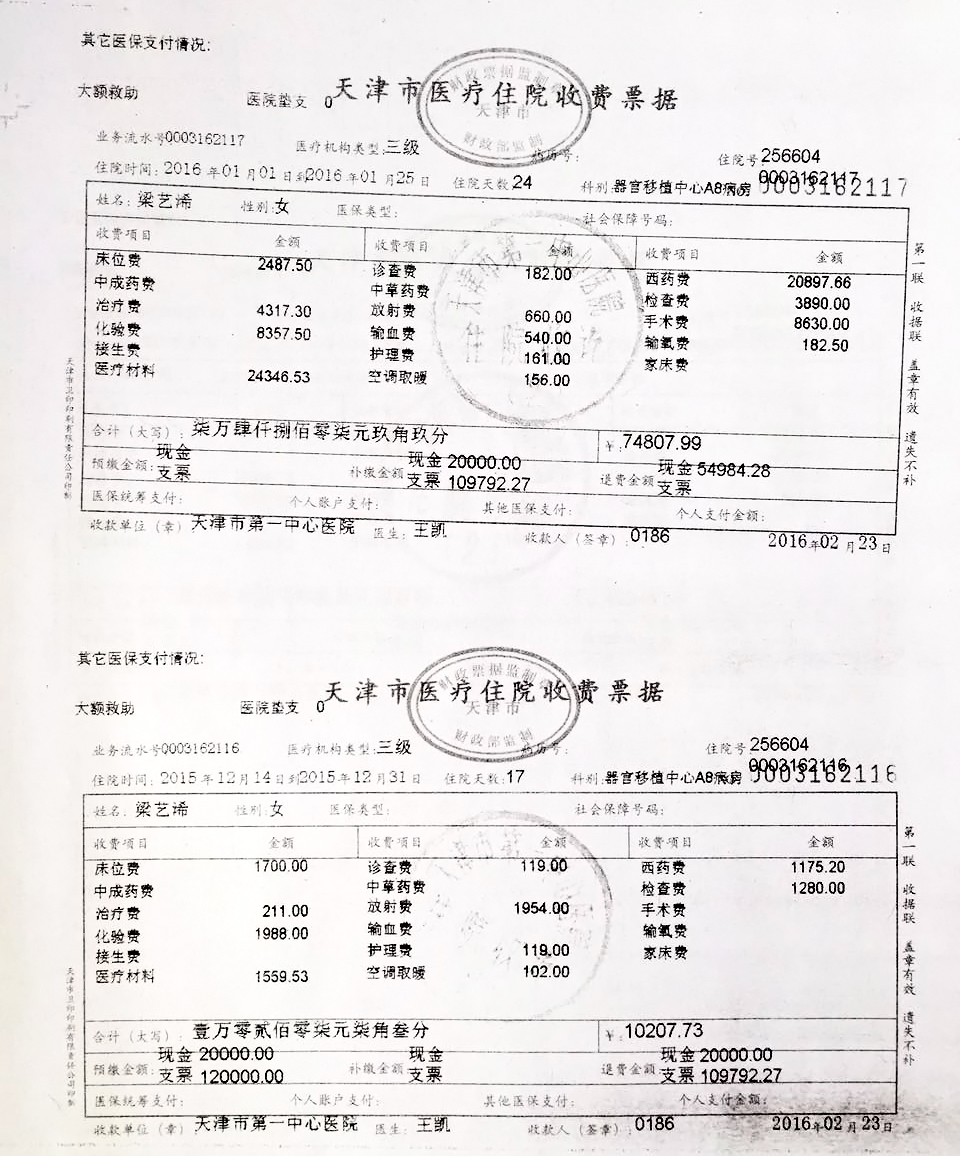 其它医保支付情况:
大额救助 医院垫支 0 天津市医疗住院收费票据
财政票据监制
天津市
财政部监制
业务流水号0003162117 医疗机构类型:三级 病历号: 住院号 256604
0003162117
住院时间: 2016 年01 月01 日到2016 年01 月25 日 住院天数 24 科别:器官移植中心A8病房 0003162117
姓名: 梁艺浠 性别:女 医保类型: 社会保障号码:
收费项目 金额 收费项目 金额 收费项目 金额
床位费 2487.50 诊查费 182.00 西药费 20897.66
中成药费 中草药费 检查费 3890.00
治疗费 4317.30 放射费 660.00 手术费 8630.00
化验费 8357.50 输血费 540.00 输氧费 182.50
接生费 护理费 161.00 家床费
医疗材料 24346.53 空调取暖 156.00
合计 (大写): 柒万肆仟捌佰零柒元玖角玖分 ¥: 74807.99
预缴金额: 现金 补缴金额 现金 20000.00 退费金额 现金 54984.28
支票 支票 109792.27 支票
医保统筹支付: 个人账户支付: 其他医保支付: 个人支付金额:
收款单位 (章) 天津市第一中心医院 医生: 王凯 收款人 (签章): 0186 2016年02 月23日
第一联 收据联 盖章有效 遗失不补
其它医保支付情况:
大额救助 医院垫支 0 天津市医疗住院收费票据
财政票据监制
天津市
财政部监制
业务流水号0003162116 医疗机构类型:三级 病历号: 住院号 256604
0003162116
住院时间: 2015 年12 月14 日到2015 年12 月31 日 住院天数:17 科别:器官移植中心A8病房 0003162116
姓名: 梁艺浠 性别:女 医保类型: 社会保障号码:
收费项目 金额 收费项目 金额 收费项目 金额
床位费 1700.00 诊查费 119.00 西药费 1175.20
中成药费 中草药费 检查费 1280.00
治疗费 211.00 放射费 1954.00 手术费
化验费 1988.00 输血费 输氧费
接生费 护理费 119.00 家床费
医疗材料 1559.53 空调取暖 102.00
合计 (大写): 壹万零贰佰零柒元柒角叁分 ¥: 10207.73
预缴金额: 现金 20000.00 补缴金额 现金 退费金额 现金 20000.00
支票 120000.00 支票 支票 109792.27
医保统筹支付: 个人账户支付: 其他医保支付: 个人支付金额:
收款单位 (章) 天津市第一中心医院 医生: 王凯 收款人 (签章): 0186 2016年02 月23日
第一联 收据联 盖章有效 遗失不补